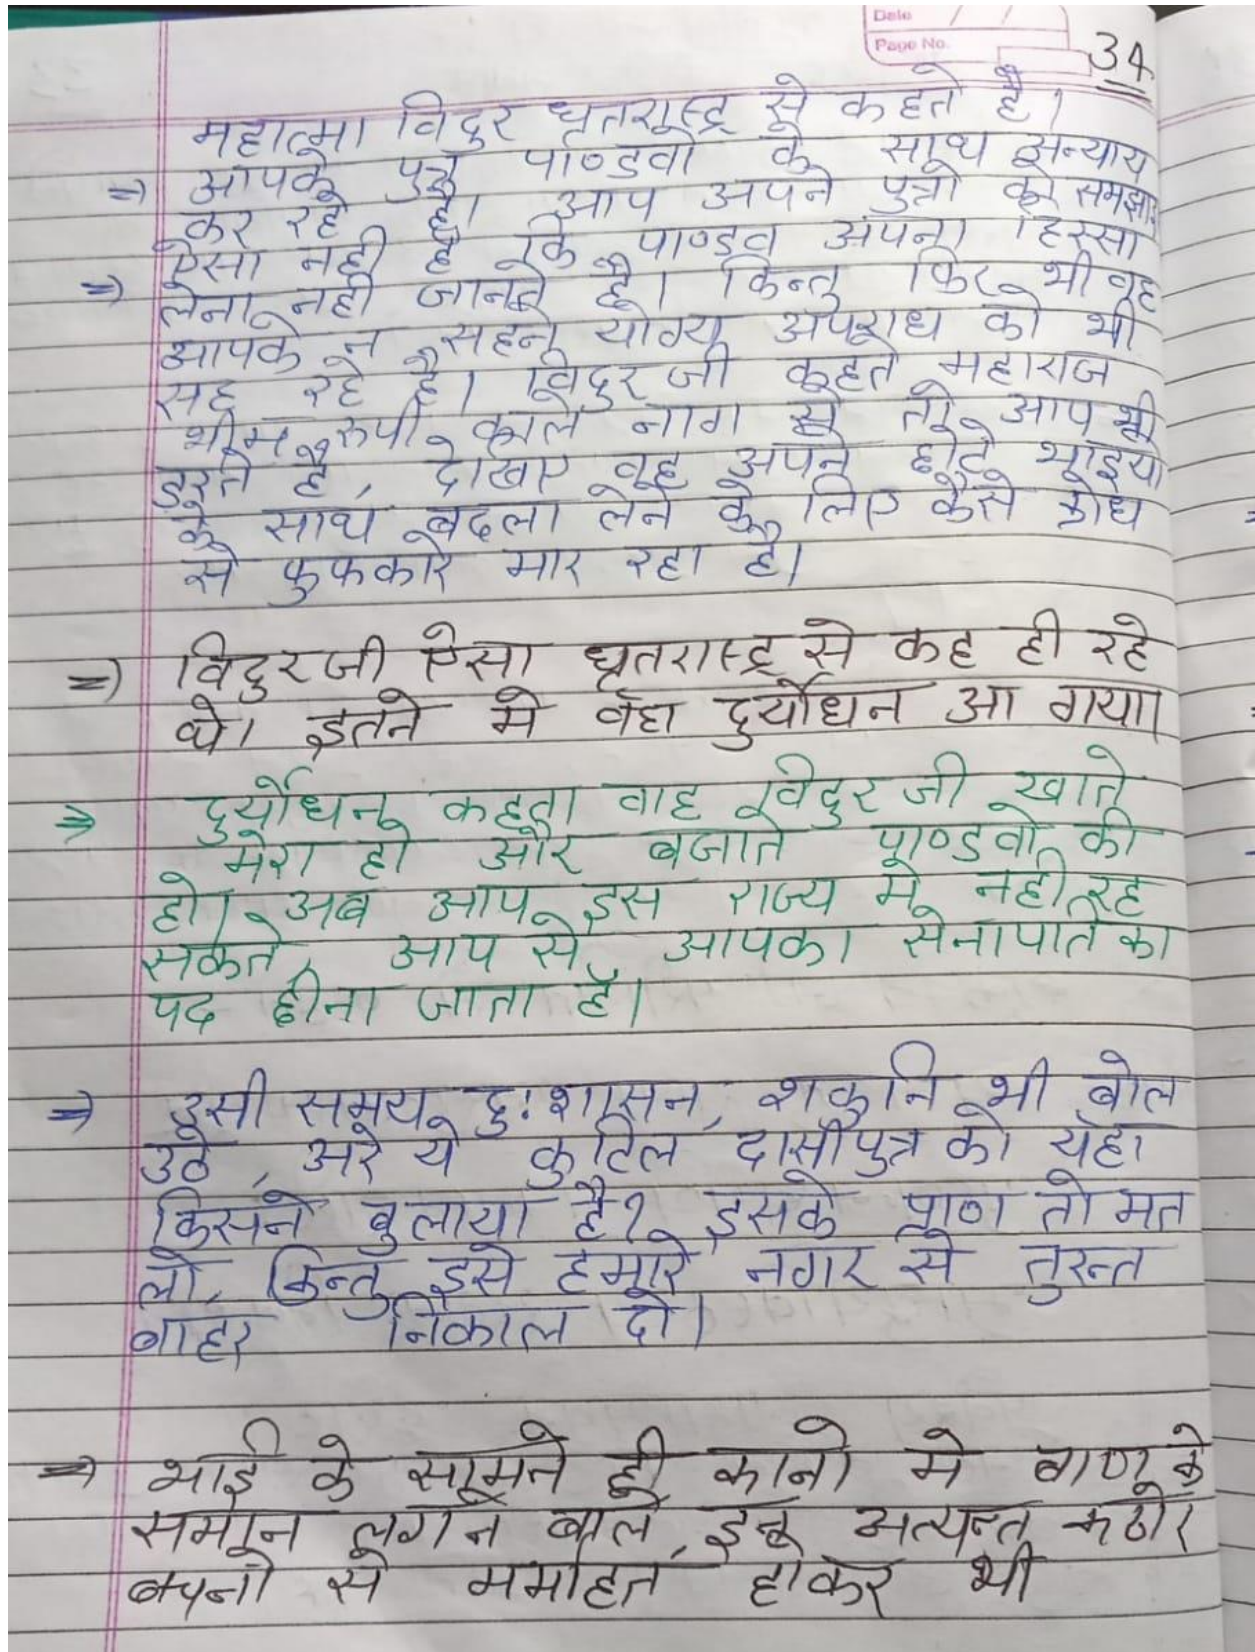 Date / /
Page No.
34
महात्मा विदुर धृतराष्ट्र से कहते है।
⇒ आपके पुत्र पाण्डवो के साथ अन्याय
कर रहे है। आप अपने पुत्रो को समझाए
ऐसा नही है कि पाण्डव अपना हिस्सा
⇒ लेना नही जानते है। किन्तु फिर भी वह
आपके न सहने योग्य अपराध को भी
सह रहे है। विदुर जी कहते महाराज
भीम रुपी काले नाग से तो आप भी
डरते है, देखिए वह अपने छोटे भाइयो
के साथ बदला लेने के लिए कैसे क्रोध
से फुफकारे मार रहा है।
⇒ विदुर जी ऐसा धृतरास्ट्र से कह ही रहे
थे। इतने मे वहा दुर्योधन आ गया।
⇒ दुर्योधन कहता वाह विदुर जी खाते
मेरा हो और बजाते पाण्डवो की
हो। अब आप इस राज्य मे नही रह
सकते, आप से आपका सेनापति का
पद छीना जाता है।
⇒ उसी समय दु:शासन, शकुनि भी बोल
उठे, अरे ये कुटिल दासीपुत्र को यहा
किसने बुलाया है? इसके प्राण तो मत
लो, किन्तु इसे हमारे नगर से तुरन्त
बाहर निकाल दो।
⇒ भाई के सामने ही कानो मे बाण के
समान लगने वाले, इन अत्यन्त कठोर
बचनो से मर्माहत होकर भी